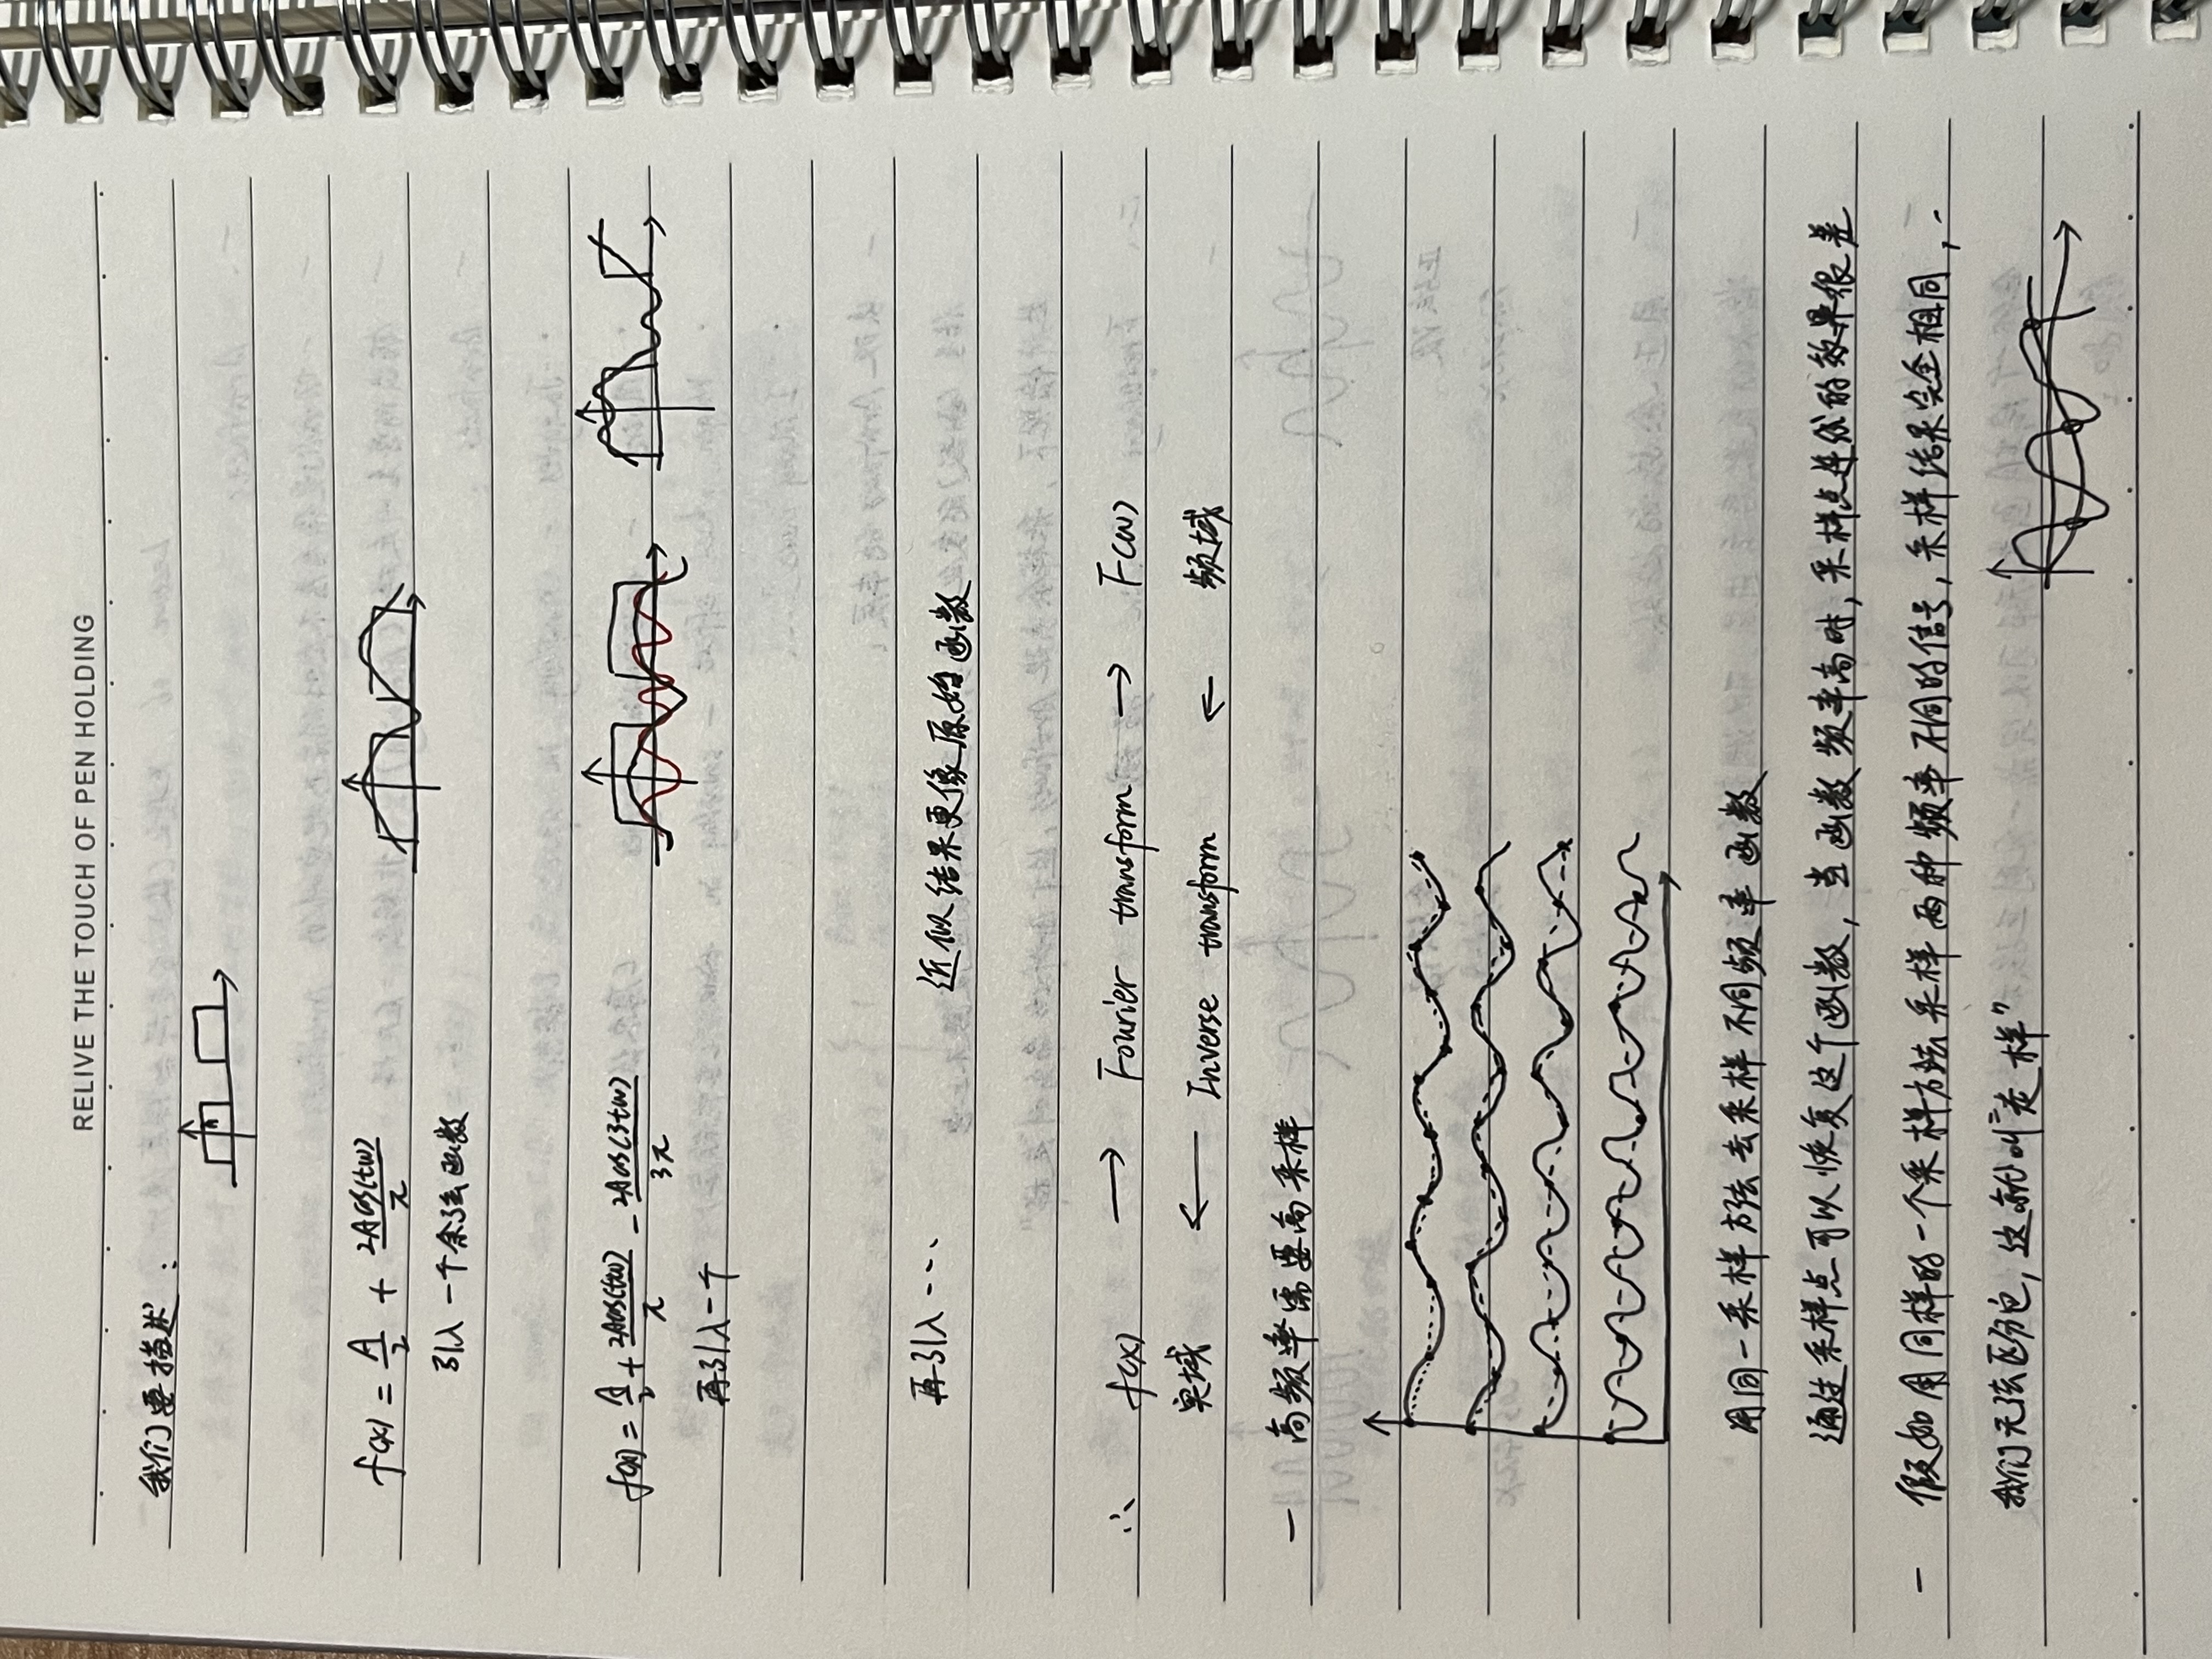 RELIVE THE TOUCH OF PEN HOLDING
我们要描述：
f(x) = A/2 + 2Acos(tw)/π
引入一个余弦函数
f(x) = A/2 + 2Acos(tw)/π - 2Acos(3tw)/3π
再引入一个
再引入.... 近似结果更像原始函数
∴ f(x) → Fourier transform → F(w)
实域 ← Inverse transform ← 频域
- 高频率需要高采样
用同一采样方法去采样不同频率函数
通过采样点可以恢复这个函数, 当函数频率高时, 采样点连成的效果很差
- 假如用同样的一个采样方法采样两种频率不同的信号, 采样结果完全相同,
我们无法区分它, 这就叫"走样"